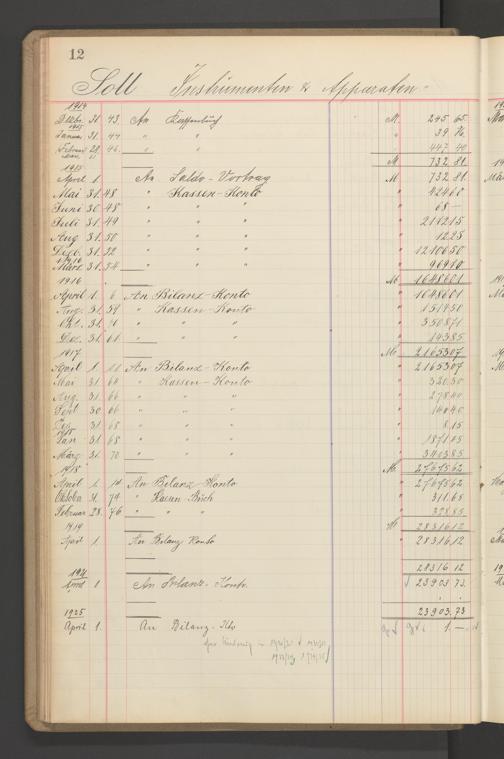 12
Soll Instrumenten & Apparaten
1914
Dezbr. 31. 43. An Kassenbuch M. 245 65.
1915
Januar 31. 44. " " " 39 76.
Februar 28. 46. " " " 447 40
M 732 81.
1915
April 1. An Saldo-Vortrag M. 732 81.
Mai 31. 48 " Kassen-Konto " 42460
Juni 30. 48 " " " " 68 —
Juli 31. 49 " " " " 218215
Aug 31. 50 " " " " 1225
Dez. 31. 52 " " " " 1210650
1916
März 31. 54 " " " " 96950
M. 1648601
1916
April 1. 6 An Bilanz-Konto " 1648601
Aug. 31. 59 " Kassen-Konto " 151950
Okt. 31. 70 " " " " 350871
Dez. 31. 61 " " " " 14385
M. 2165307
1917
April 1. 11 An Bilanz-Konto " 2165307
Mai 31. 64 " Kassen-Konto " 32030
Aug. 31. 66 " " " " 27840
Sept 30. 66 " " " " 14040
31. 68 " " " " 815
1918
Jan 31. 68 " " " "
März 31. 70 " " " " 340385
M. 2767562
1918
April 1. An Bilanz-Konto " 2767562
Oktober 31. 74 " Kassen-Buch " 31165
Februar 28. 76 " " " " 32885
M. 2831612
1919
April 1 An Bilanz Konto " 2831612
28316 12
April 1 An Bilanz-Konto. 23903 73.
23903.73
1925
April 1. An Bilanz-Kto 1.—